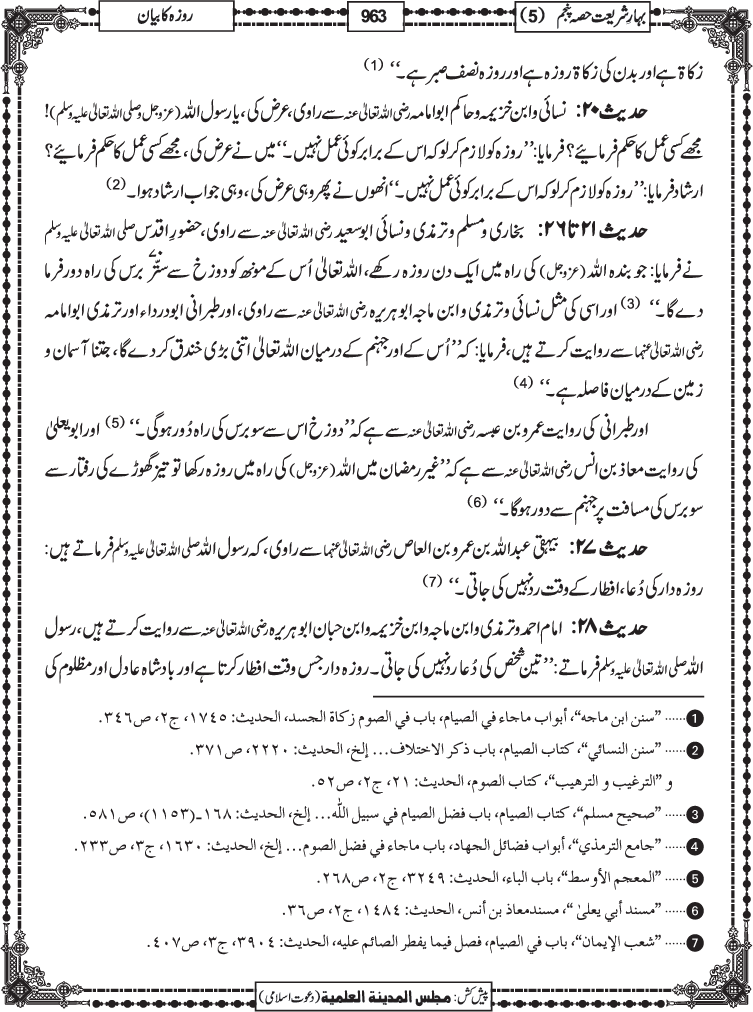 بہارِ شریعت حصہ پنجم (5)
963
روزہ کا بیان
زکاۃ ہے اور بدن کی زکاۃ روزہ ہے اور روزہ نصف صبر ہے۔‘‘ (1)
حدیث ۲۰: نسائی و ابن خزیمہ و حاکم ابو امامہ رضی اللہ تعالیٰ عنہ سے راوی، عرض کی، یا رسول اللہ (عزوجل وصلی اللہ تعالیٰ علیہ وسلم)!
مجھے کسی عمل کا حکم فرمائیے؟ فرمایا: ’’روزہ کو لازم کر لو کہ اس کے برابر کوئی عمل نہیں۔‘‘ میں نے عرض کی، مجھے کسی عمل کا حکم فرمائیے؟
ارشاد فرمایا: ’’روزہ کو لازم کر لو کہ اس کے برابر کوئی عمل نہیں۔‘‘ انھوں نے پھر وہی عرض کی، وہی جواب ارشاد ہوا۔ (2)
حدیث ۲۱ تا ۲۶: بخاری و مسلم و ترمذی و نسائی ابو سعید رضی اللہ تعالیٰ عنہ سے راوی، حضورِ اقدس صلی اللہ تعالیٰ علیہ وسلم
نے فرمایا: جو بندہ اللہ (عزوجل) کی راہ میں ایک دن روزہ رکھے، اللہ تعالیٰ اُس کے مونھ کو دوزخ سے ستّر ۷۰ برس کی راہ دور فرما
دے گا۔‘‘ (3) اور اسی کی مثل نسائی و ترمذی و ابن ماجہ ابو ہریرہ رضی اللہ تعالیٰ عنہ سے راوی، اور طبرانی ابو درداء اور ترمذی ابو امامہ
رضی اللہ تعالیٰ عنہما سے روایت کرتے ہیں، فرمایا: کہ ’’اُس کے اور جہنم کے درمیان اللہ تعالیٰ اتنی بڑی خندق کر دے گا، جتنا آسمان و
زمین کے درمیان فاصلہ ہے۔‘‘ (4)
اور طبرانی کی روایت عمرو بن عبسہ رضی اللہ تعالیٰ عنہ سے ہے کہ ’’دوزخ اس سے سو برس کی راہ دُور ہوگی۔‘‘ (5) اور ابو یعلیٰ
کی روایت معاذ بن انس رضی اللہ تعالیٰ عنہ سے ہے کہ ’’غیرِ رمضان میں اللہ (عزوجل) کی راہ میں روزہ رکھا تو تیز گھوڑے کی رفتار سے
سو برس کی مسافت پر جہنم سے دور ہوگا۔‘‘ (6)
حدیث ۲۷: بیہقی عبداللہ بن عمرو بن العاص رضی اللہ تعالیٰ عنہما سے راوی، کہ رسول اللہ صلی اللہ تعالیٰ علیہ وسلم فرماتے ہیں:
روزہ دار کی دُعا، افطار کے وقت رد نہیں کی جاتی۔‘‘ (7)
حدیث ۲۸: امام احمد و ترمذی و ابن ماجہ و ابن خزیمہ و ابن حبان ابو ہریرہ رضی اللہ تعالیٰ عنہ سے روایت کرتے ہیں، رسول
اللہ صلی اللہ تعالیٰ علیہ وسلم فرماتے: ’’تین شخص کی دُعا رد نہیں کی جاتی۔ روزہ دار جس وقت افطار کرتا ہے اور بادشاہ عادل اور مظلوم کی
1 ...... ”سنن ابن ماجه“، أبواب ماجاء في الصيام، باب في الصوم زكاة الجسد، الحديث: ١٧٤٥، ج٢، ص٣٤٦.
2 ...... ”سنن النسائي“، كتاب الصيام، باب ذكر الاختلاف... إلخ، الحديث: ٢٢٢٠، ص٣٧١.
و ”الترغيب و الترهيب“، كتاب الصوم، الحديث: ٢١، ج٢، ص٥٢.
3 ...... ”صحيح مسلم“، كتاب الصيام، باب فضل الصيام في سبيل اللّٰه... إلخ، الحديث: ١٦٨ـ(١١٥٣)، ص٥٨١.
4 ...... ”جامع الترمذي“، أبواب فضائل الجهاد، باب ماجاء في فضل الصوم... إلخ، الحديث: ١٦٣٠، ج٣، ص٢٣٣.
5 ...... ”المعجم الأوسط“، باب الباء، الحديث: ٣٢٤٩، ج٢، ص٢٦٨.
6 ...... ”مسند أبي يعلىٰ“، مسند معاذ بن أنس، الحديث: ١٤٨٤، ج٢، ص٣٦.
7 ...... ”شعب الإيمان“، باب في الصيام، فصل فيما يفطر الصائم عليه، الحديث: ٣٩٠٤، ج٣، ص٤٠٧.
پیش کش: مجلس المدینۃ العلمیۃ (دعوتِ اسلامی)